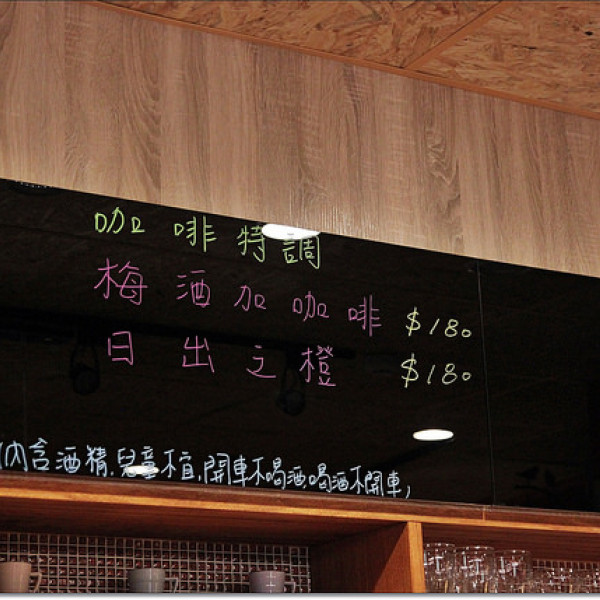 咖啡特調
梅酒加咖啡 $180
日出之橙 $180
(內含酒精,兒童不宜,開車不喝酒,喝酒不開車,